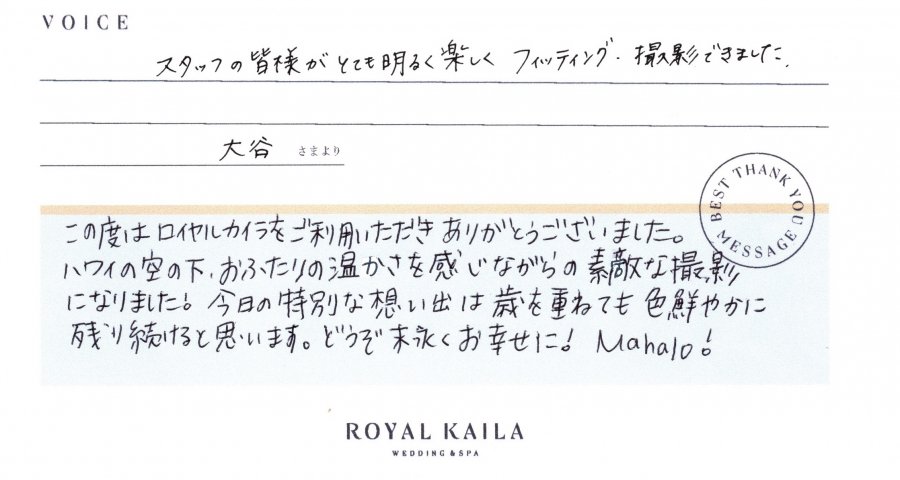 VOICE
スタッフの皆様がとても明るく楽しく フィッティング・撮影できました.
大谷 さまより
BEST THANK YOU MESSAGE
この度はロイヤルカイラをご利用いただきありがとうございました。
ハワイの空の下、おふたりの温かさを感じながらの素敵な撮影
になりました! 今日の特別な想い出は歳を重ねても色鮮やかに
残り続けると思います。どうぞ末永くお幸せに! Mahalo!
ROYAL KAILA
WEDDING & SPA